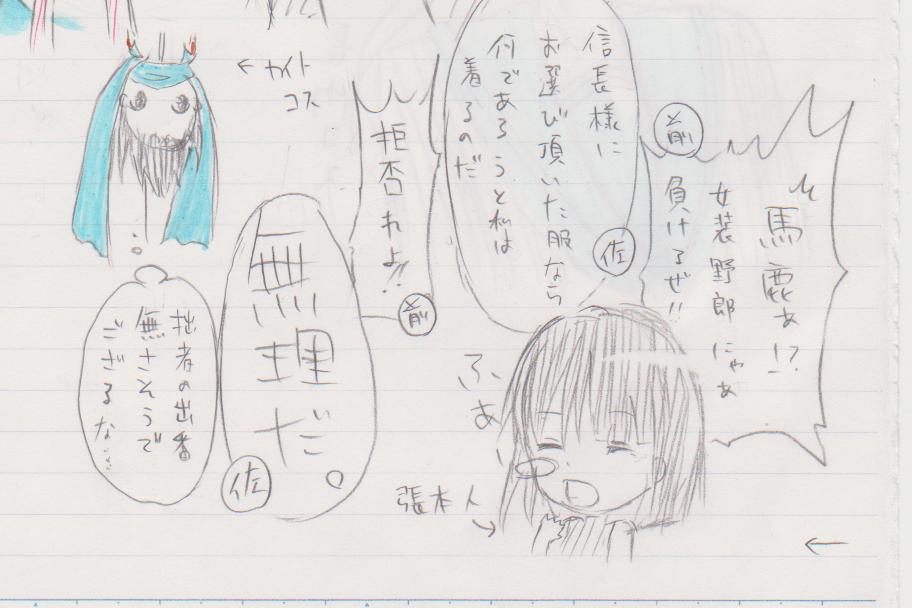 馬鹿ぁ!?
女装野郎にゃぁ
負けるぜ!!
前
信長様に
お選び頂いた服なら
何であろうと私は
着るのだ
佐
拒否れよ!!
前
無理だ。
佐
←カイト
コス
拙者の出番
無さそうで
ござるな…
ふぁー
張本人
→
←